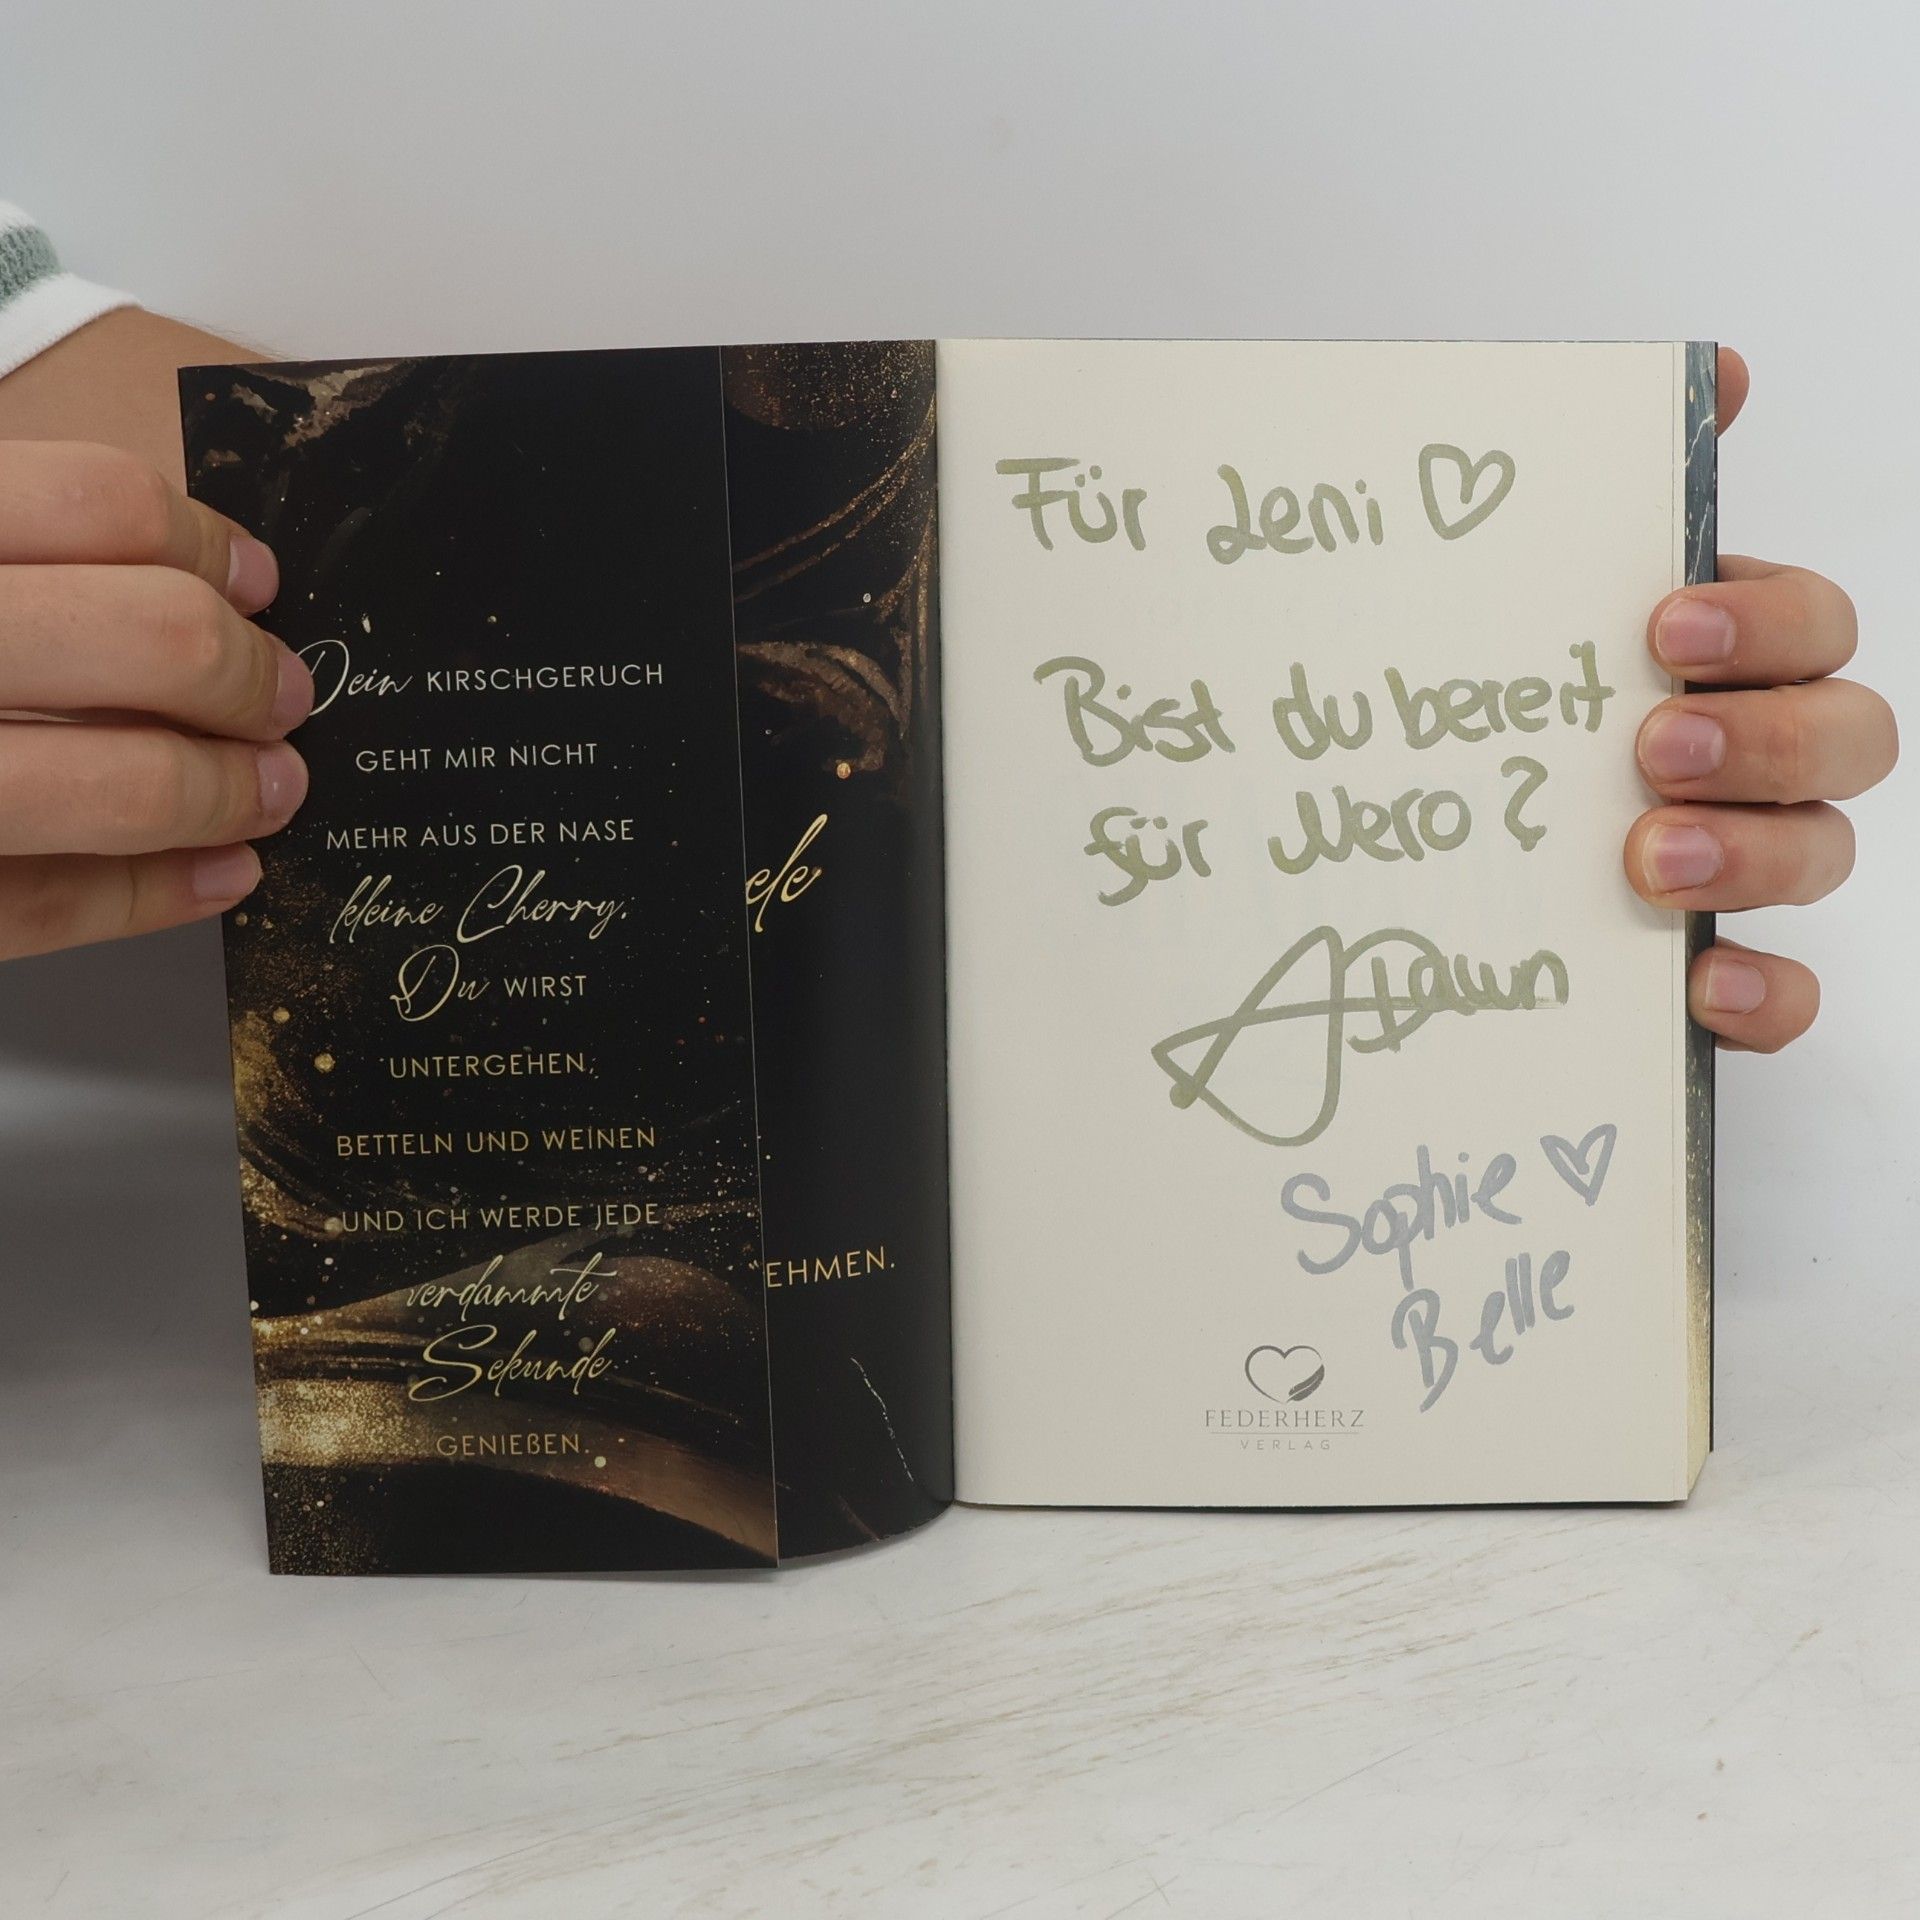 Dein KIRSCHGERUCH
GEHT MIR NICHT
MEHR AUS DER NASE
kleine Cherry.
Du WIRST
UNTERGEHEN,
BETTELN UND WEINEN
UND ICH WERDE JEDE
verdammte
Sekunde
GENIEßEN.
ele
EHMEN.
Für Leni ♡
Bist du bereit
für Nero?
Dawn
Sophie ♡
Belle
FEDERHERZ
VERLAG